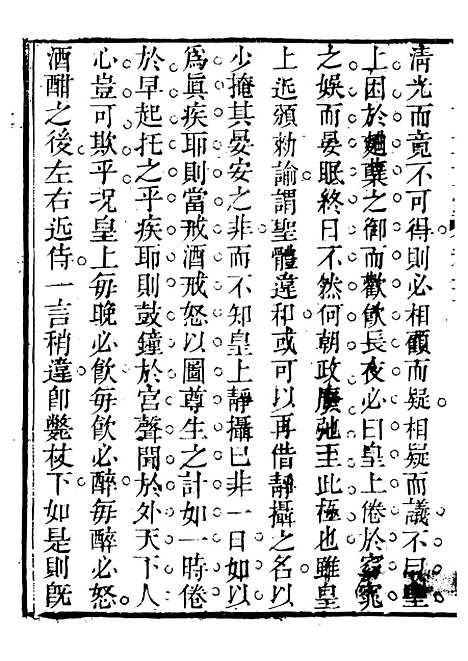 清光而竟不可得則必相顧而疑相疑而議不曰皇
上困於麯蘖之御而歡飲長夜必曰皇上倦於窈窕
之娛而晏眠終日不然何朝政廢弛至此極也雖皇
上近頒勅諭謂聖體違和或可以再借靜攝之名以
少掩其晏安之非而不知皇上靜攝已非一日如以
爲眞疾耶則當戒酒戒怒以圖尊生之計如一時倦
於早起托之乎疾耶則鼓鐘於宮聲聞於外天下人
心豈可欺乎况皇上每晚必飲每飲必醉每醉必怒
酒酣之後左右近侍一言稍違卽斃杖下如是則旣